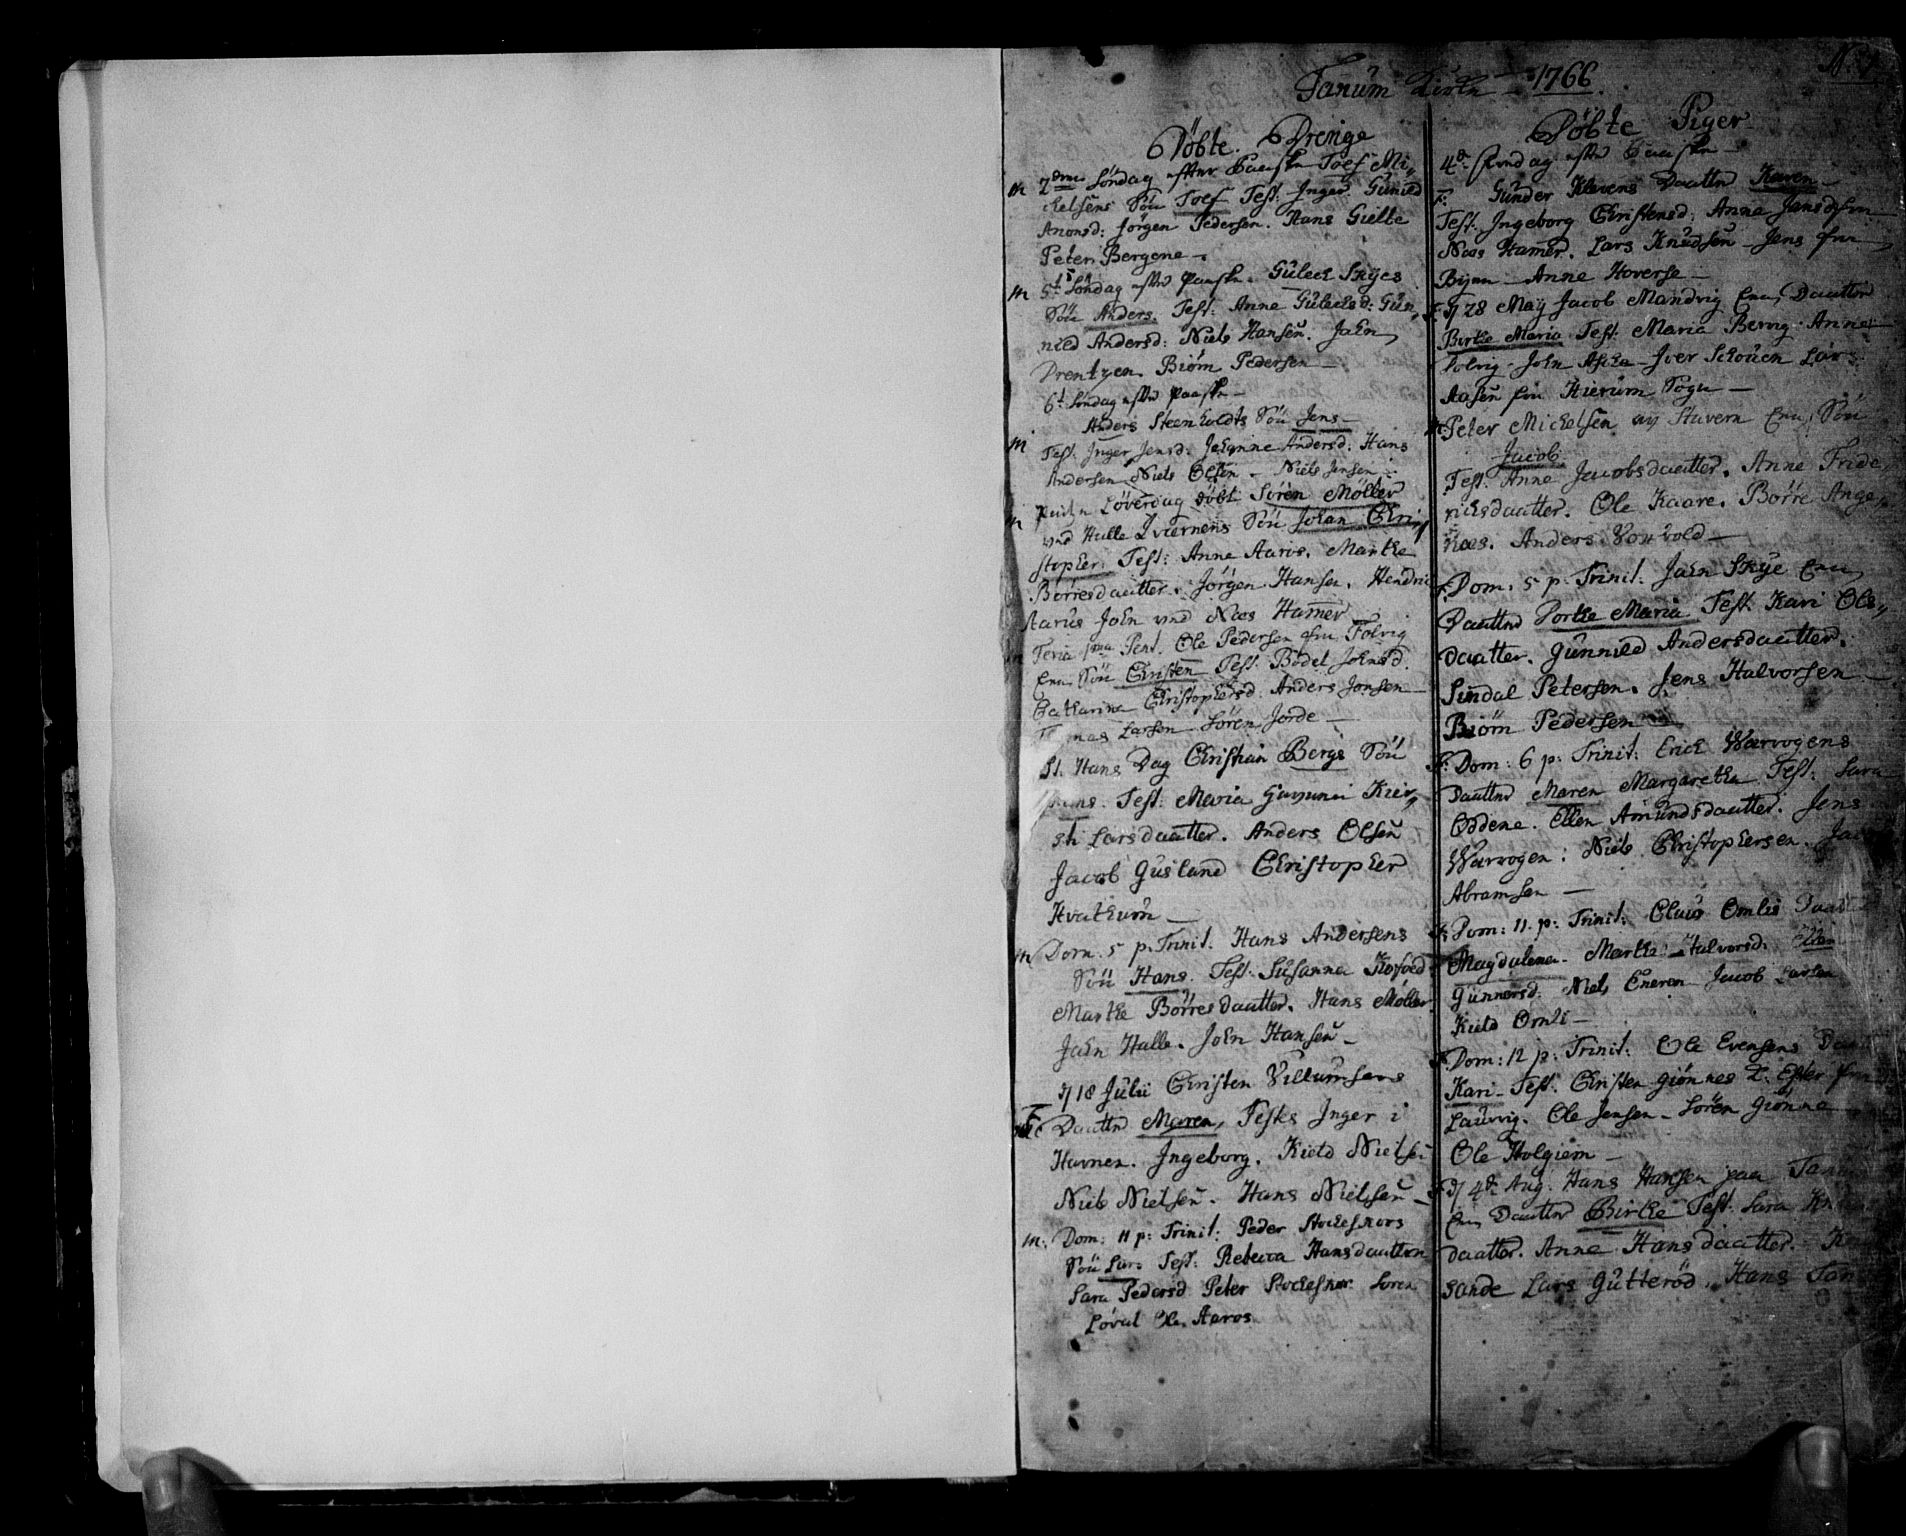 N. 1
Tanum Kirke - 1766.
Döbte. Drenge
m 2den Söndag efter Paaske Toef Mi,,
ckelsens Sön Toef Test: Inger Gunild
Anonsd: Jörgen Pedersen. Hans Gielte
Peter Bergene -
m 5t Söndag efter Paaske. Guleck Skÿes
Sön Anders. Test: Anne Gulecksd: Gun,,
nild Andersd: Niels Hansen. Jahn
Prentzen. Biörn Pedersen -
6t Söndag efter Paaske -
Anders Steenholdts Sön Jens -
m Test: Inger Jensd: Johanne Andersd: Hans
Andersen Niels Olsen - Niels Jensen -
Löverdag döbt Sören Möller
m ved Halle Qværnens Sön Johan Chri,,
stopher. Test: Anne Aaros. Marthe
Börresdaatter. Jörgen Hansen. Hendric
Aarus John ved Næs Hamer
Feria 1ma Pent. Ole Pedersen fra Folvig
Sön Christen Test. Bodel Johnsd.
Catharina Christophersd. Anders Jonsen -
Larsen Sören Jorde -
St. Hans Dag Christian Bergs Sön
Hans. Test: Maria Kier,,
sti Larsdaatter. Anders Olsen
Jacob Gusland Christopher
Hvatkum -
m Dom: 5 p. Trinit: Hans Andersens
Sön Hans. Test: Susanna Kofoed
Marthe Börresdaatter. Hans Möller
Jahn Halle. John Hansen -
d 18 Julii Christen Villumsens
F Daatter Maren, Testes Inger i
Havnen. Ingeborg. Kield Nielsen
Niels Nielsen. Hans Nielsen -
m. Dom: 11 p: Trinit: Peder Stockesnors
Sön Lars Test: Rebecca Hansdaatter
Sara Pedersd Peter Stockesnor Soren
Löval Ole Aaros.
Döbte Piger
4de Söndag efter Paaske -
F: Gunder Klevens Daatter Karen -
Test. Ingeborg Christensd: Anna Jensd fra
Næs Hamer. Lars Knudsen - Jens fra
Byen - Anne Hoverse -
F. d 28 May Jacob Mandvig Daatter
Birthe Maria Test. Maria Bervig. Anne
Solvig - John Aske - Iver Schouen Lars
Aasen fra Hierum Sogn -
m Peter Mickelsen aÿ Stavern Sön
Jacob
Test. Anne Jacobsdaatter. Anne Fride,,
richsdaatter. Ole Kaare. Börre Ange,,
næs. Anders Vou vold -
F. Dom: 5 p: Trinit. Jahn Skÿe
Daatter Dorthe Maria Test. Kari Ols,,
daatter. Gunnild Andersdaatter.
Sundal Petersen. Jens Halvorsen -
Biörn Pedersen -
F. Dom: 6 p: Trinit: Erick Warvogens
Daatter Maren Margaretha Test: Sara
Oddene. Ellen Amundsdaatter. Jens
Warvogen: Niels Christophersen. Jacob
Abramsen -
F. Dom: 11. p: Trinit: Claus Omlis Daatter
Magdalena - Marthe Halvorsd. Ellen
Gunnersd. Niels Eneren Jacob Larsen
Kield Omli -
F. Dom: 12 p: Trinit: Ole Evensens
Kari - Test. Christen Giönnes D. Ester fra
Laurvig. Ole Jensen - Sören Giönne
Ole Holgiem -
F d 4de Aug. Hans Hansen paa Tanum
Daatter Birthe Test. Sara
daatter. Anne Hansdaatter.
sande Lars Gutteröd. Hans Tan